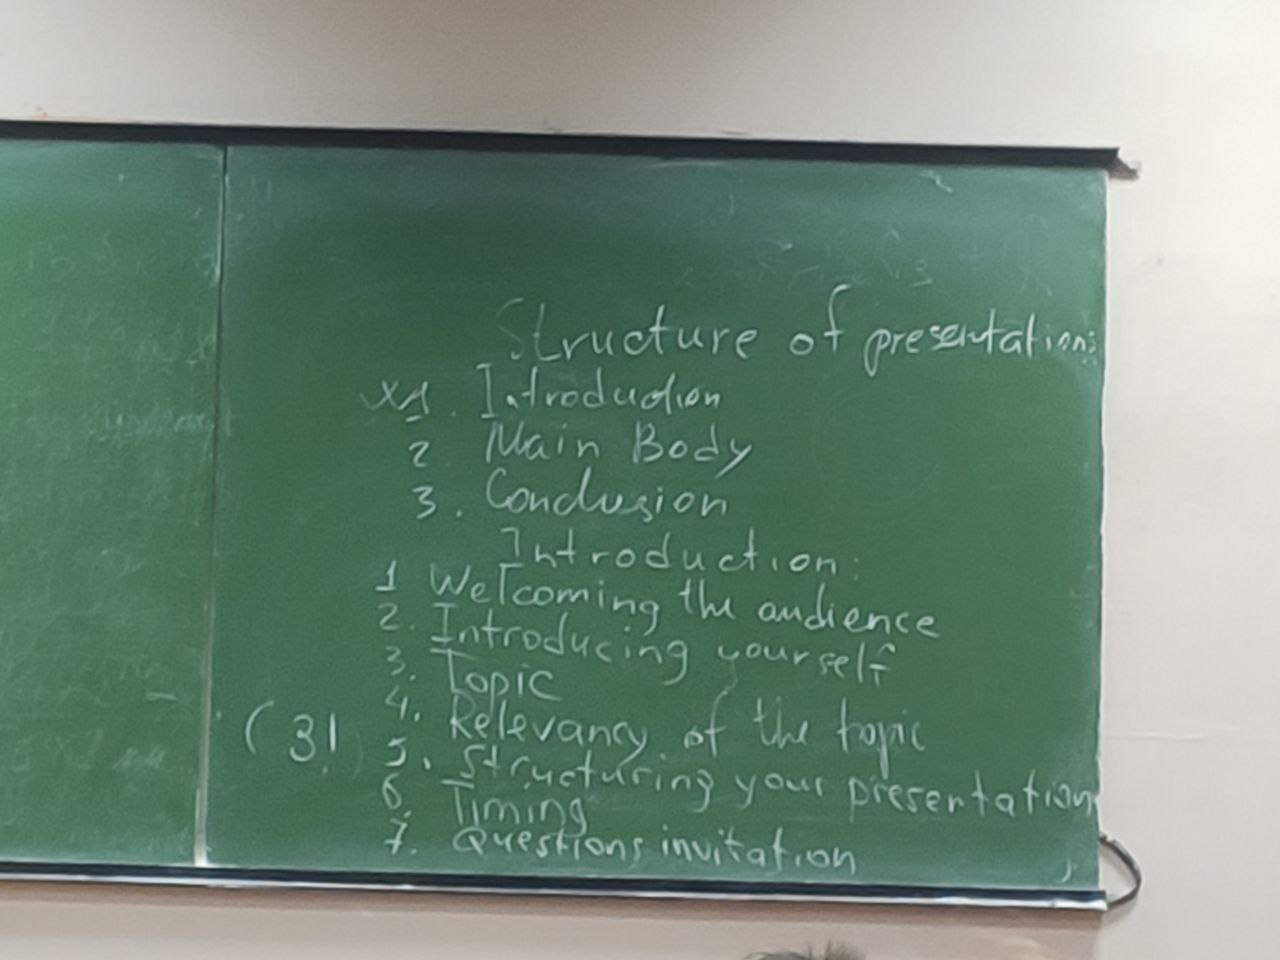 Structure of presentation:
1. Introduction
2 Main Body
3. Conclusion
Introduction:
1 Welcoming the audience
2. Introducing yourself
3. Topic
4. Relevancy of the topic
(3!) 5. Structuring your presentation
6. Timing
7. Questions invitation